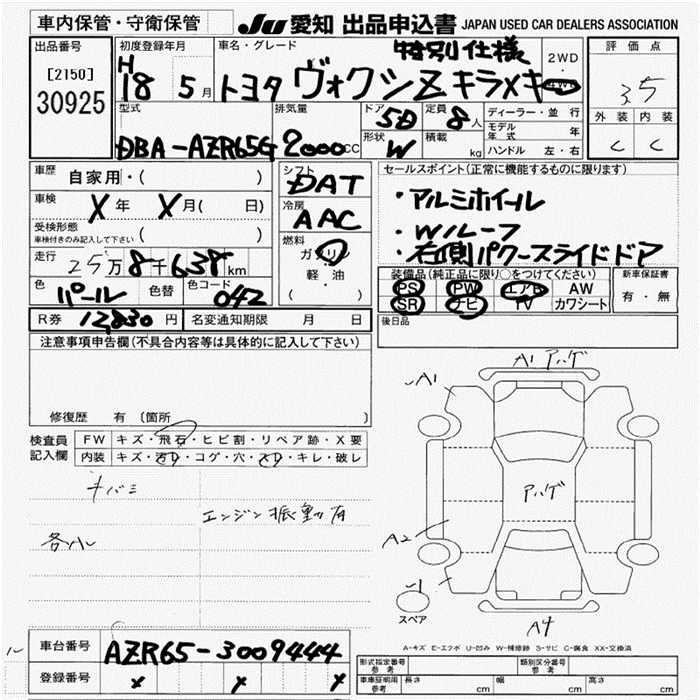 車内保管・守衛保管
JU 愛知 出品申込書 JAPAN USED CAR DEALERS ASSOCIATION
出品番号
[2150]
30925
初度登録年月
H
18 5月
車名・グレード
特別仕様
トヨタ ヴォクシZキラメキ
2WD
4WD
評価点
3.5
外装 内装
C C
型式
DBA-AZR65G
排気量
2000cc
ドア
5D
定員
8人
形状
W
積載
kg
ディーラー・並行
モデル年式 年
ハンドル 左・右
車歴
自家用・( )
車検
X年 X月( 日)
受検形態
車検付きのみ記入して下さい ( )
走行
25万8千638km
色
パール
色替
色コード
042
シフト
DAT
冷房
AAC
燃料
ガソリン
軽油
・( )
セールスポイント(正常に機能するものに限ります)
・アルミホイール
・Wルーフ
・右側パワースライドドア
装備品(純正品に限り○をつけてください)
PS PW エアB AW
SR ナビ TV カワシート
新車保証書
有・無
R券 12,830円 名変通知期限 月 日
後日品
注意事項申告欄(不具合内容等は具体的に記入して下さい)
修復歴 有〔箇所 〕
検査員記入欄
FW キズ・飛石・ヒビ割・リペア跡・X要
内装 キズ・汚れ・コゲ・穴・スレ・キレ・破レ
キバミ
エンジン振動有
各ハレ
A1 アハゲ
A1
アハゲ
A2
A4
スペア
A-キズ E-エクボ U-凹み W-補修跡 S-サビ C-腐食 XX-交換済
車台番号 AZR65-3009444
登録番号 X X X
形式指定番号
参考
類別区分番号
参考
車庫証明用
参考
長さ cm 幅 cm 高さ cm